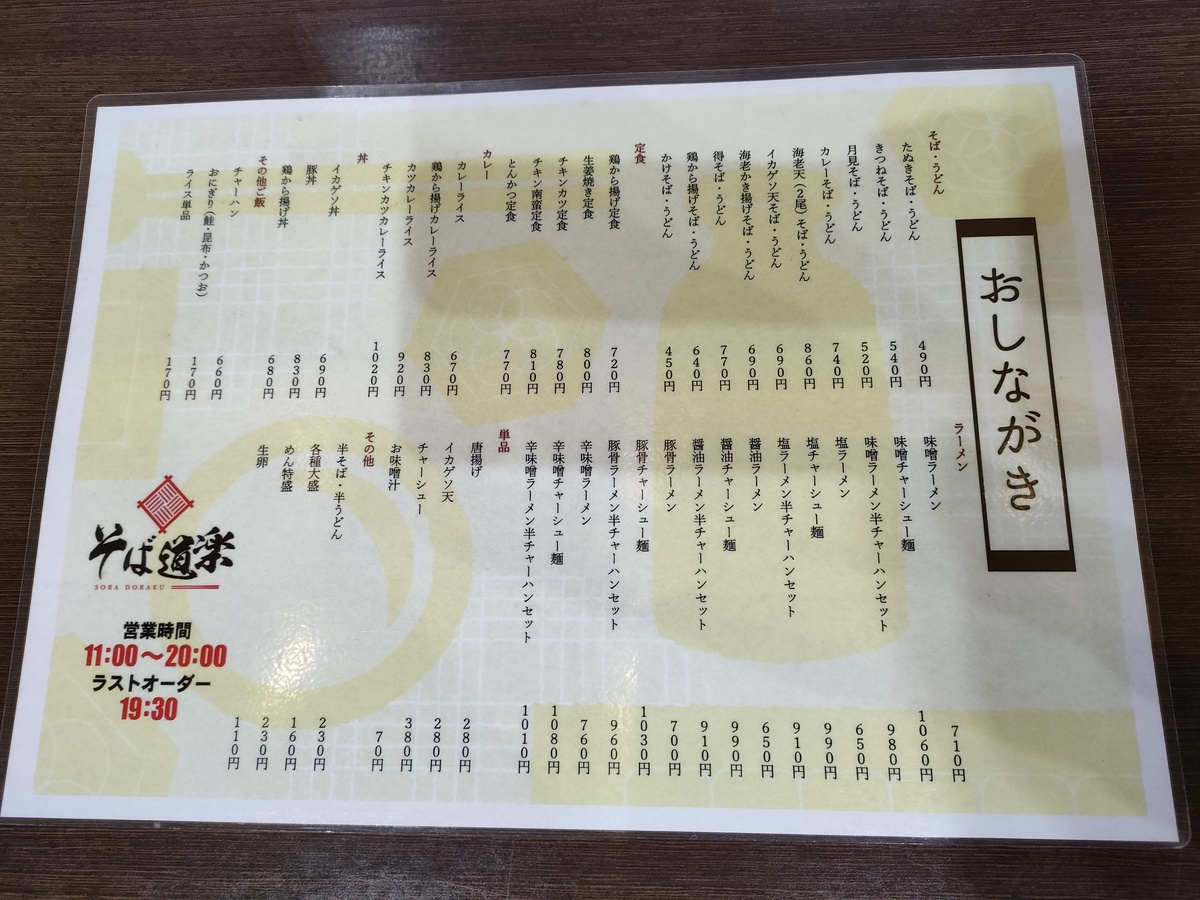 おしながき
そば・うどん
たぬきそば・うどん 490円
きつねそば・うどん 540円
月見そば・うどん 520円
カレーそば・うどん 740円
海老天(2尾)そば・うどん 860円
イカゲソ天そば・うどん 690円
海老かき揚げそば・うどん 690円
得そば・うどん 770円
鶏から揚げそば・うどん 640円
かけそば・うどん 450円
定食
鶏から揚げ定食 720円
生姜焼き定食 800円
チキンカツ定食 780円
チキン南蛮定食 810円
とんかつ定食 770円
カレー
カレーライス 670円
鶏から揚げカレーライス 830円
カツカレーライス 920円
チキンカツカレーライス 1020円
丼
イカゲソ丼 690円
豚丼 830円
鶏から揚げ丼 680円
その他ご飯
チャーハン 660円
おにぎり(鮭・昆布・かつお) 170円
ライス単品 170円
ラーメン
味噌ラーメン 710円
味噌チャーシュー麺 1060円
味噌ラーメン半チャーハンセット 980円
塩ラーメン 650円
塩チャーシュー麺 990円
塩ラーメン半チャーハンセット 910円
醤油ラーメン 650円
醤油チャーシュー麺 990円
醤油ラーメン半チャーハンセット 910円
豚骨ラーメン 700円
豚骨チャーシュー麺 1030円
豚骨ラーメン半チャーハンセット 960円
辛味噌ラーメン 760円
辛味噌チャーシュー麺 1080円
辛味噌ラーメン半チャーハンセット 1010円
単品
唐揚げ 280円
イカゲソ天 280円
チャーシュー 380円
お味噌汁 70円
その他
半そば・半うどん 230円
各種大盛 160円
めん特盛 230円
生卵 110円
そば道楽
SOBA DORAKU
営業時間
11:00〜20:00
ラストオーダー
19:30